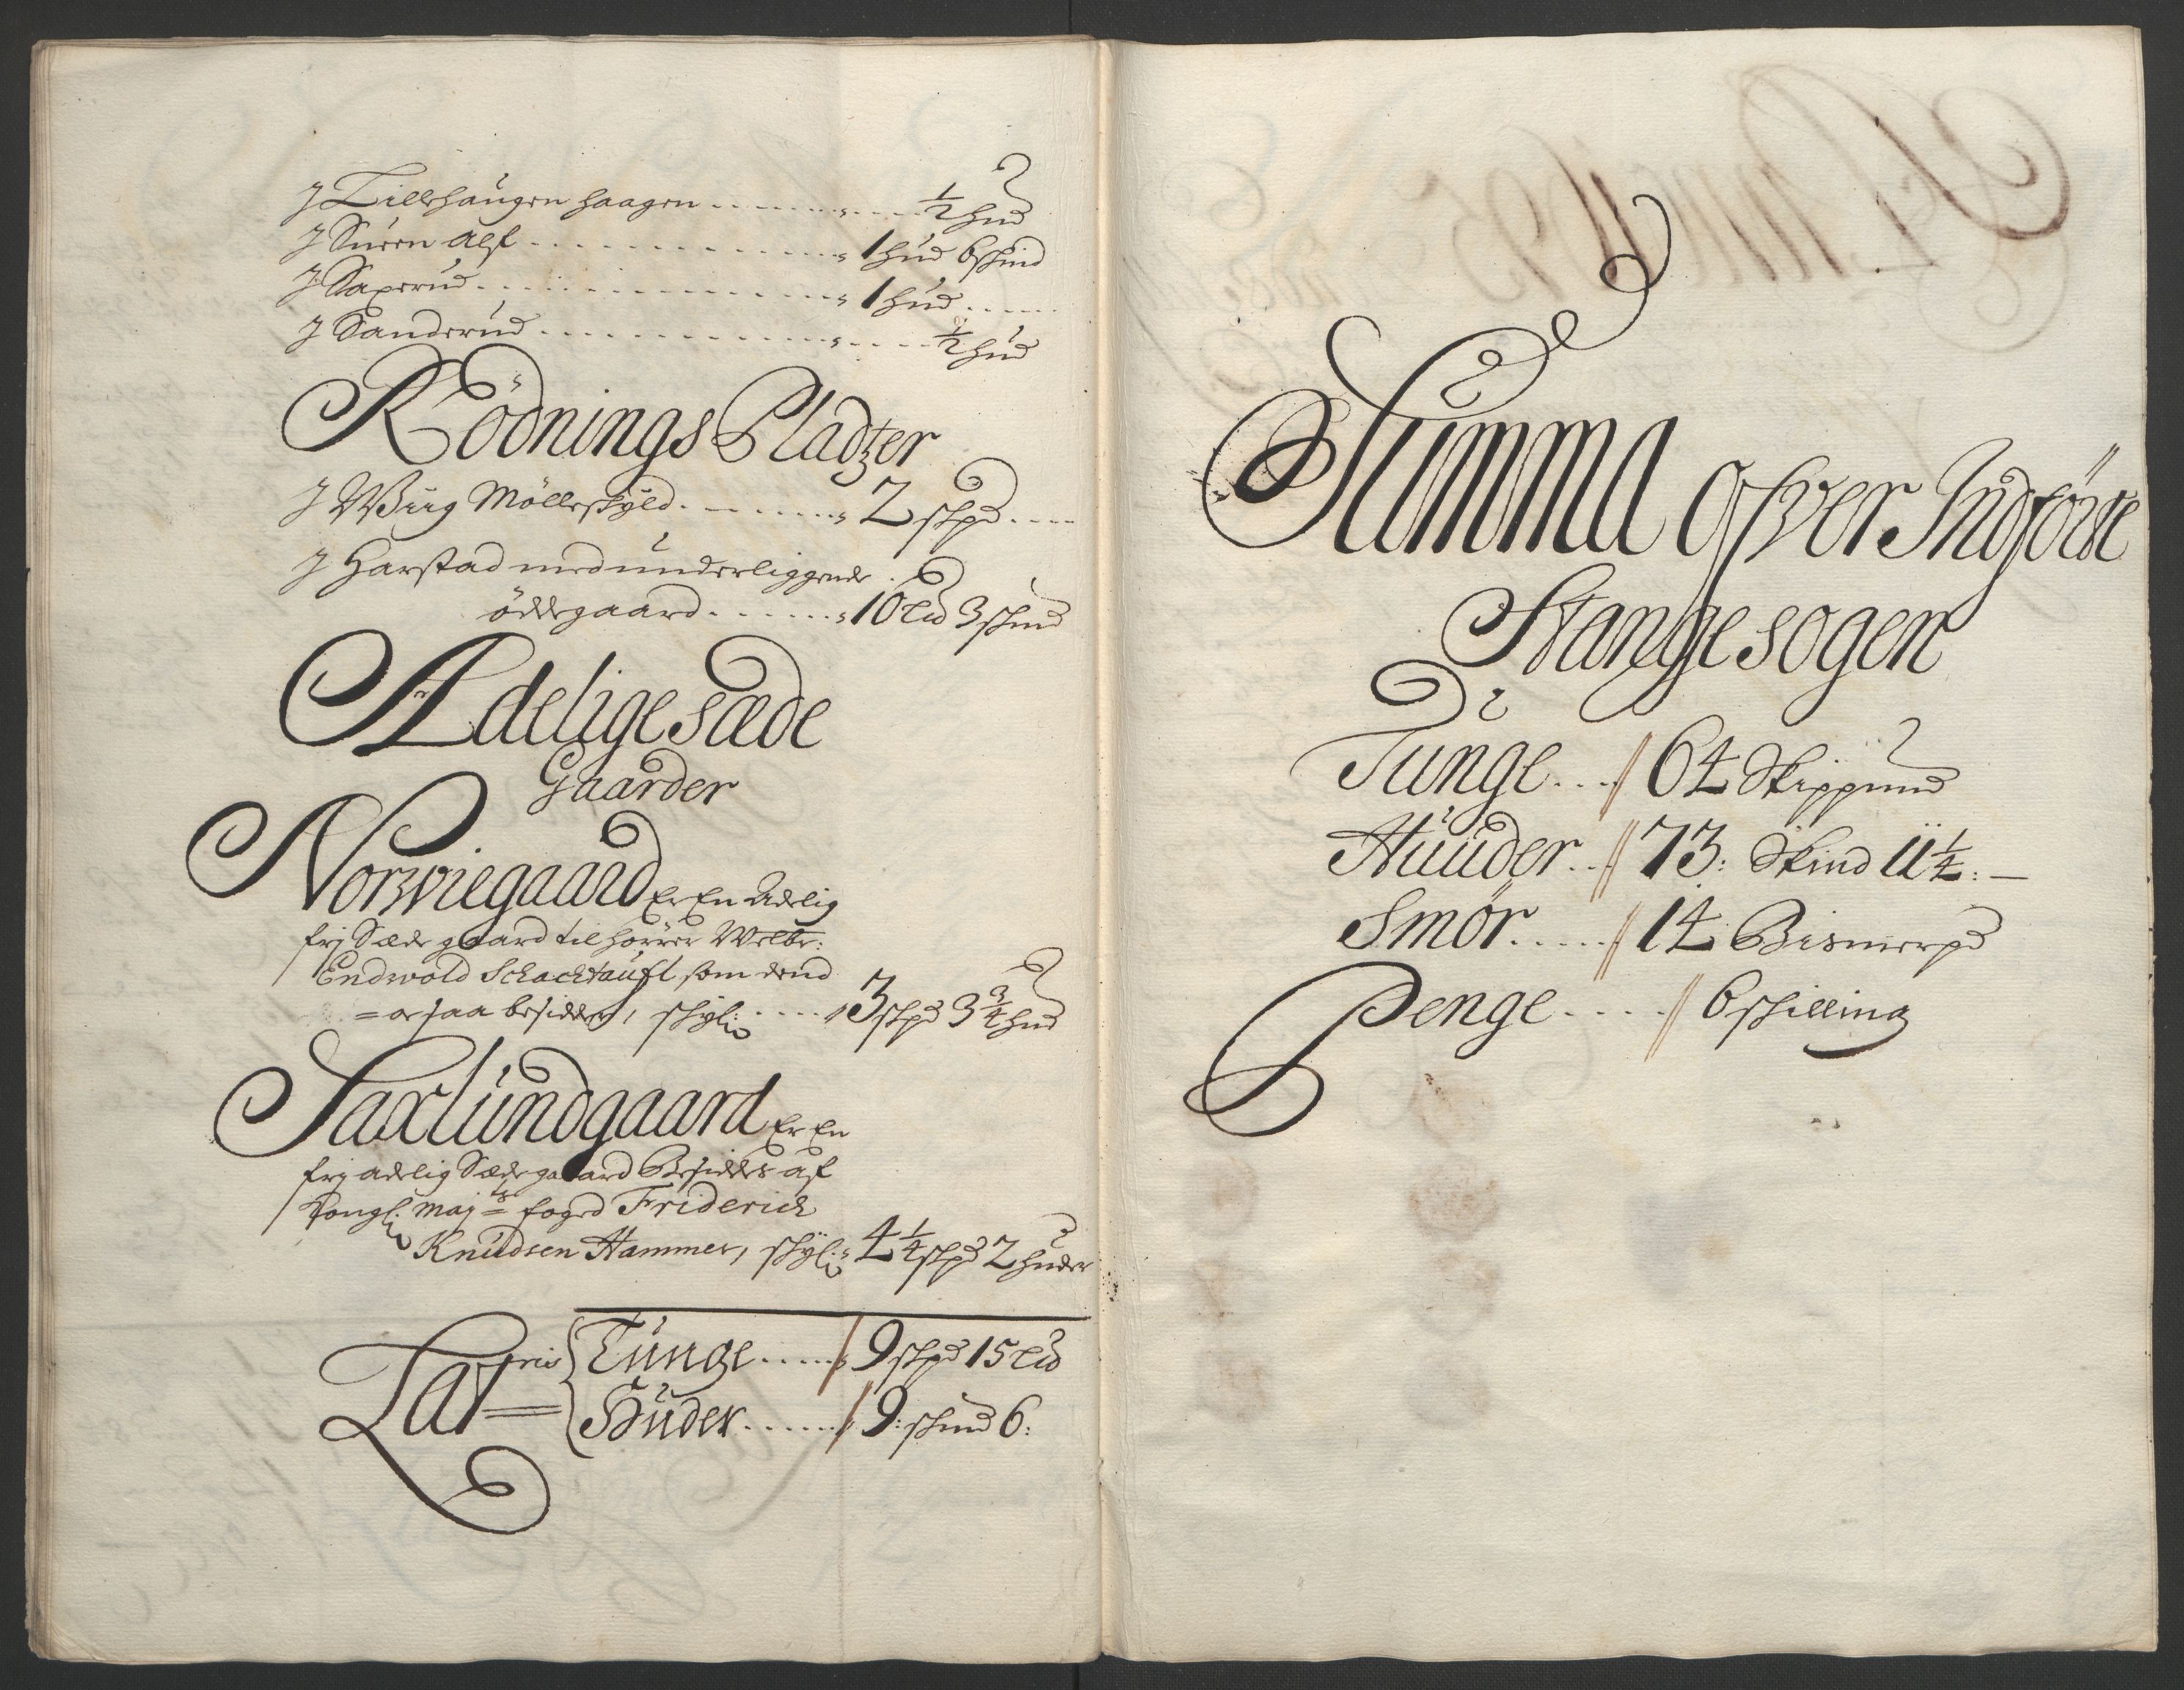 J Lillehaugen haagen . . . . . ½ hud
J Süern alf . . . . . 1 hud 6 skind
J Saxerud . . . . . 1 hud . . . .
J Sanderud . . . . . ½ hud
Rödnings Pladtzer
J Wiig Mölleskyld . . . . . 2 skpd . . . .
J Harstad med underliggende
ödegaard . . . . . 10 Lid 3 skind
Adelige sæde
Gaarder
Norwiegaard Er En Adelig
frj Sæde gaard tilhörrer Welbr:
Endwold Schachtauft som dend
= ogsaa besidder, skÿl: . . . . 3 skpd 3¾ hud
Saxlundgaard Er En
frj adelig Sæde gaard Besiddes af
Kongl: May:ts foged Friderich
Knudsen Hammer, skÿl: 4¼ skpd 2 huder
Lat=eris Tunge . . . . . 9 skpd 15 Lid
Huder . . . . . 9: skind 6:
Summa ofver Indförte
Stange sogen
Tunge . . . 64 Skippund
Huuder . . 73: Skind 11¼: —
Smör . . . . . 14 Bismerpd
Penge . . . . . 6 skilling